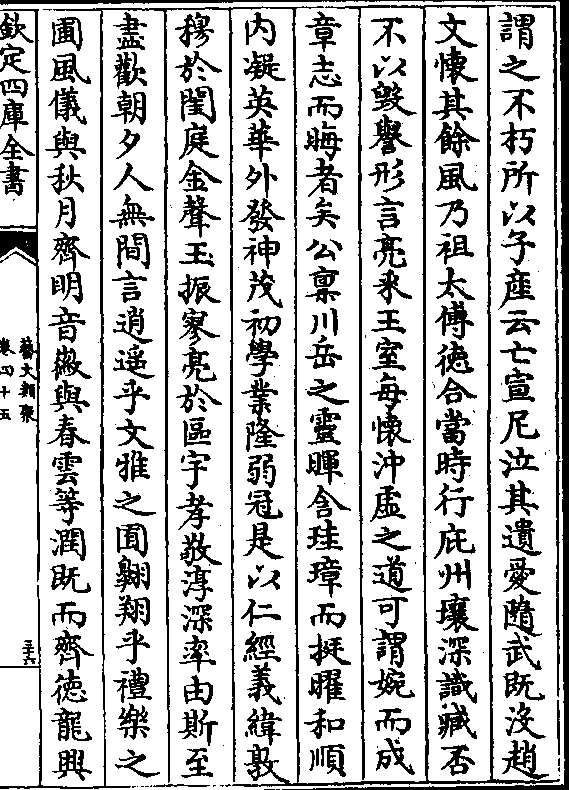 謂之不朽所以子產云亡宣尼泣其遺愛隨武既沒趙
文懷其餘風乃祖太傅德合當時行庇州壤深識臧否
不以毀譽形言亮采王室每懷沖虛之道可謂婉而成
章志而晦者矣公稟川岳之靈暉含珪璋而挺曜和順
内凝英華外發神茂初學業隆弱冠是以仁經義緯敦
穆於閨庭金聲玉振寥亮於區宇孝敬淳深率由斯至
盡歡朝夕人無間言逍遥乎文雅之囿翺翔乎禮樂之
圃風儀與秋月齊明音徽與春雲等潤既而齊德龍興
欽定四庫全書
藝文類聚
卷四十五
三十六